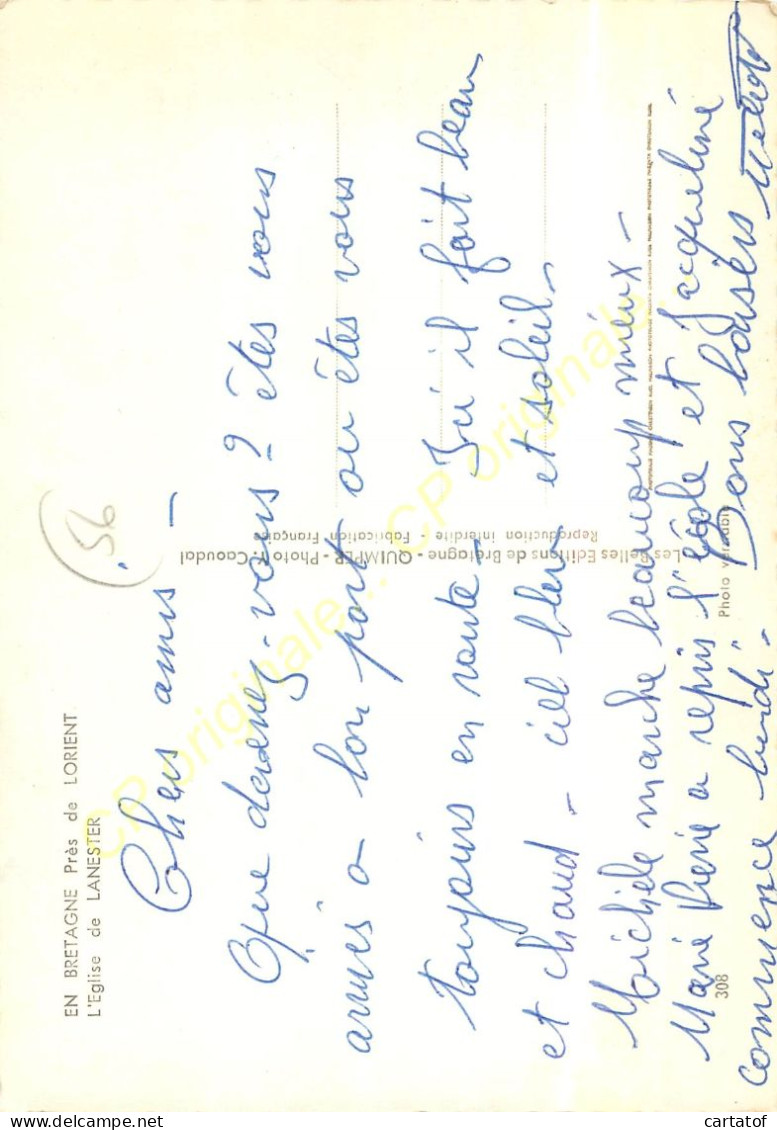 EN BRETAGNE Près de LORIENT
L'Eglise de LANESTER
56
Chers amis -
Que devenez-vous? êtes vous
arrivés a bon port ou êtes vous
toujours en route - Ici il fait beau
et chaud - ciel bleu et soleil -
Michèle marche beaucoup mieux -
Marie Pierre a repris l'école et Jacqueline
commence lundi - Bons baisers
308
Photo véritable
Les Belles Editions de Bretagne - QUIMPER - Photo Caoudal
Reproduction interdite - Fabrication Française
CP originale... CP originale.
cartatof